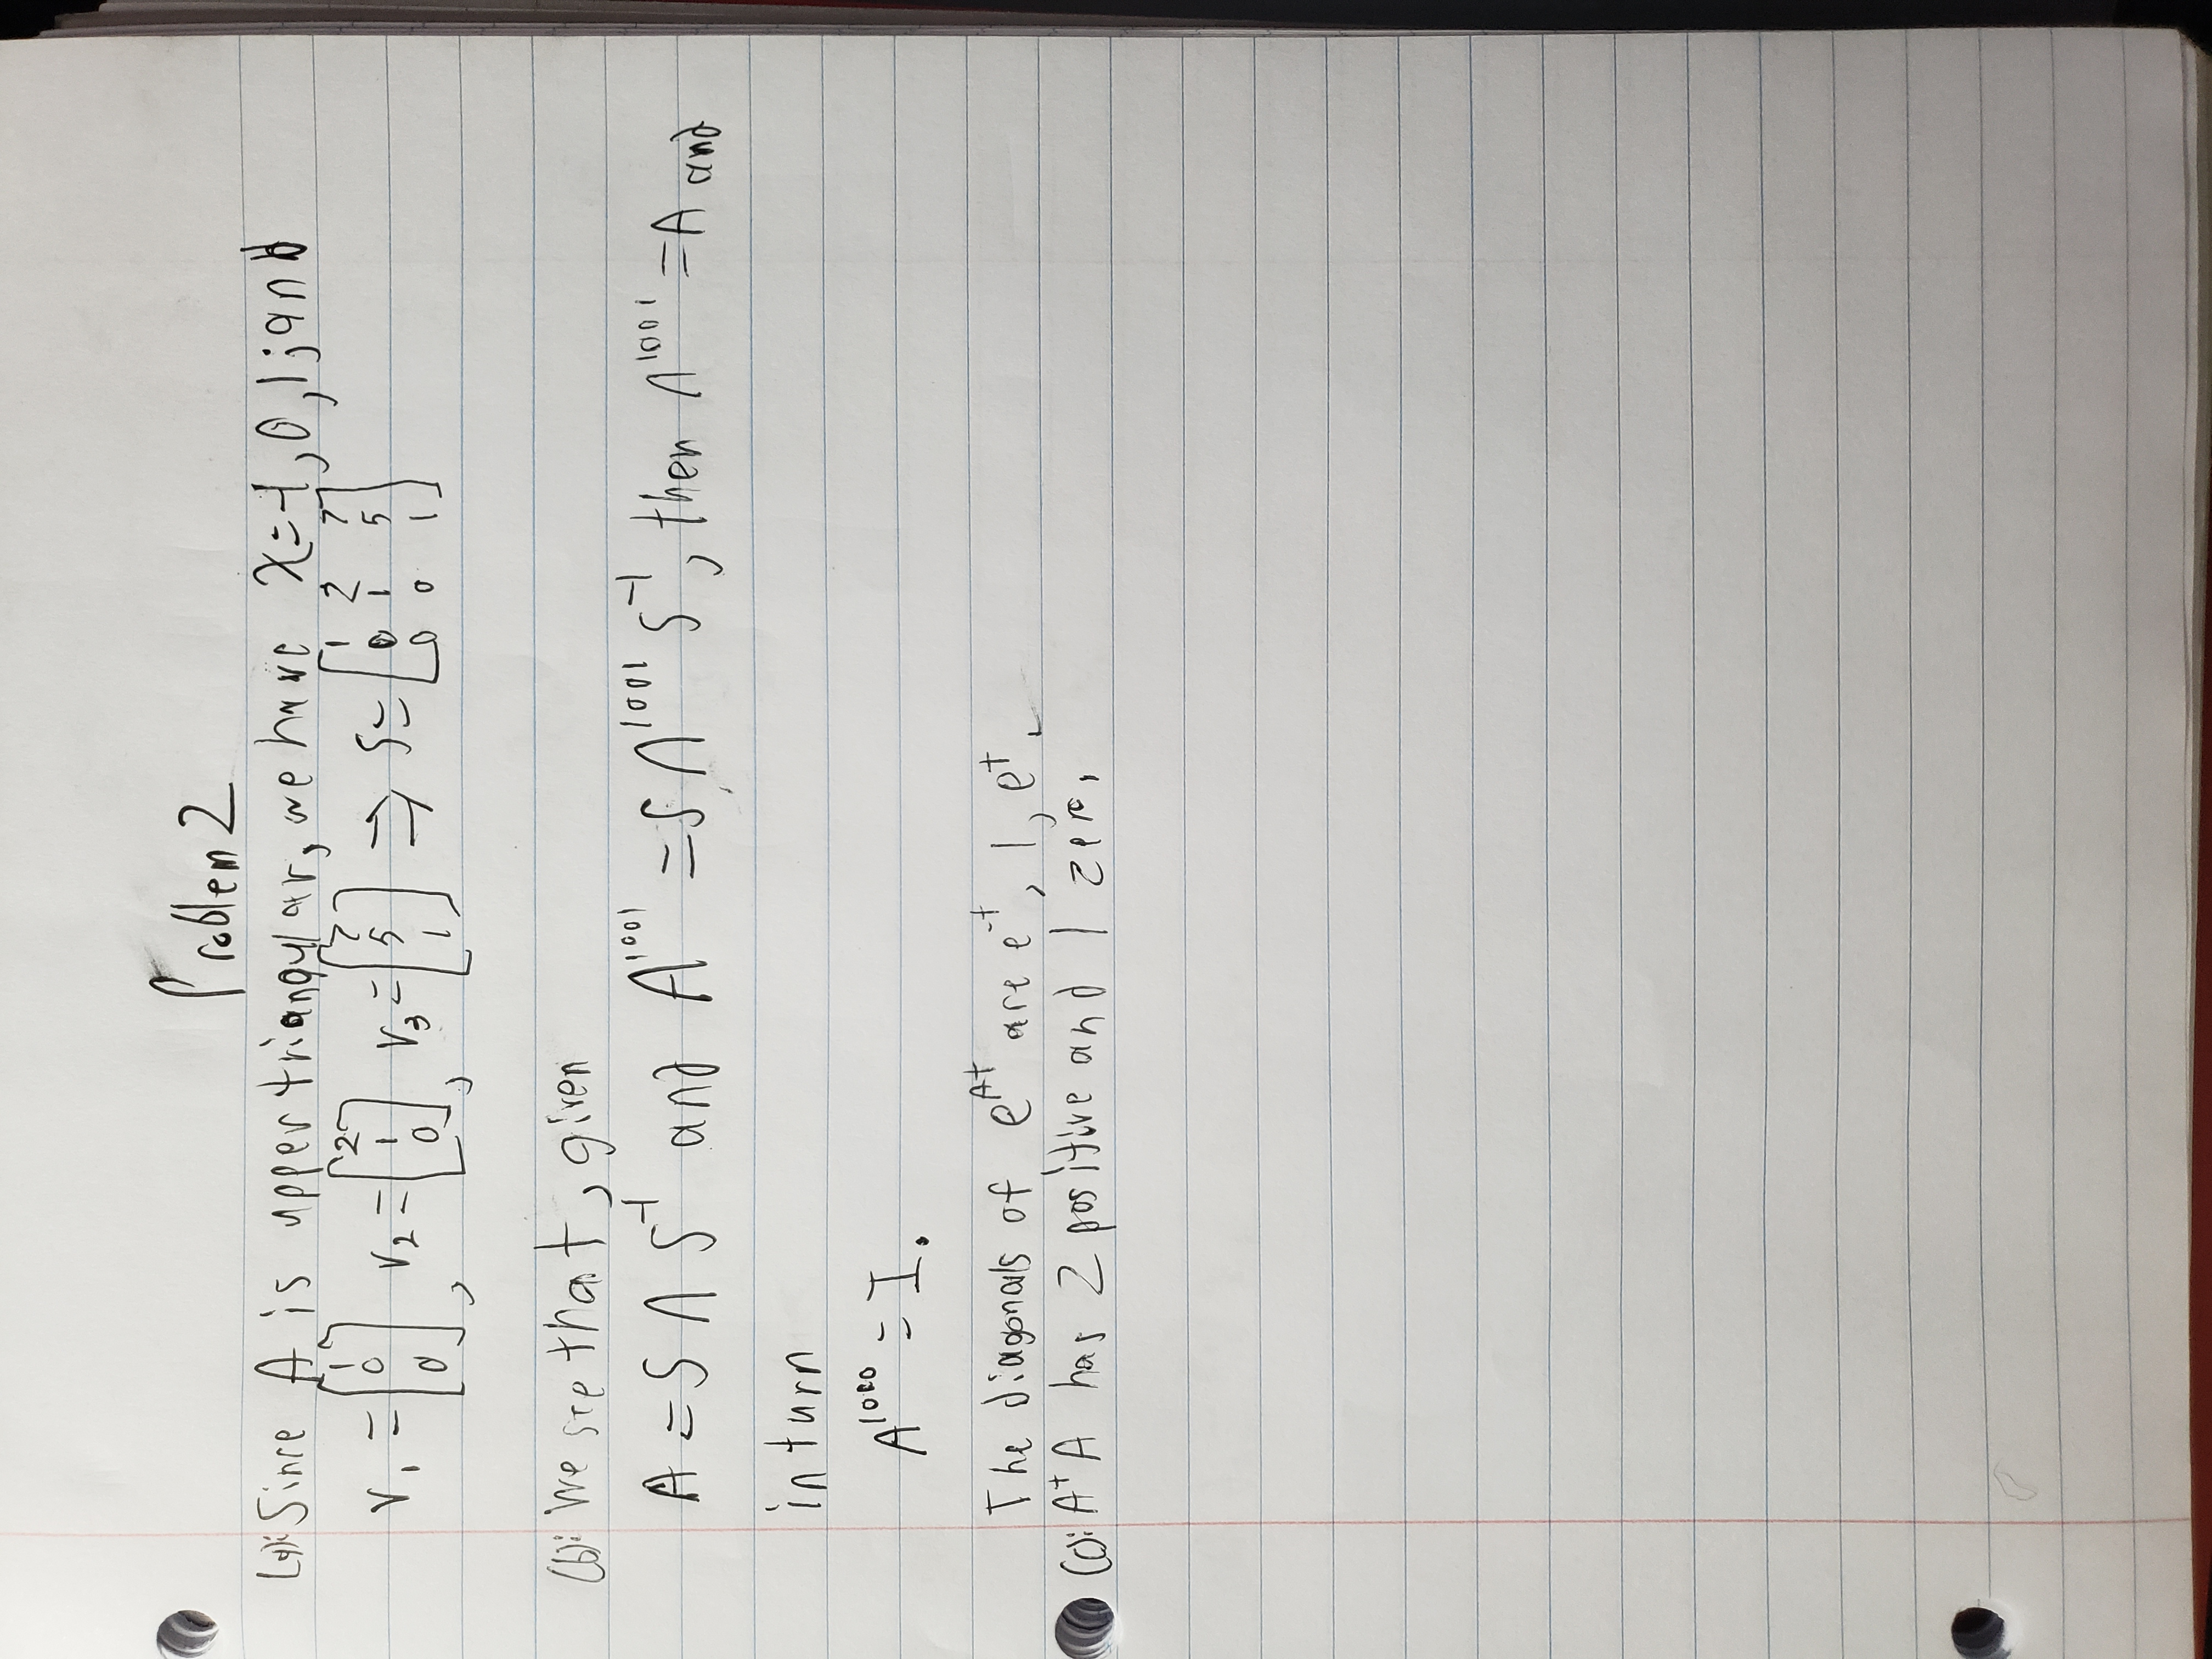 Problem 2
(a): Since A is upper triangular, we have λ=-1, 0, 1; and
v₁ = [1 0 0], v₂ = [2 1 0], v₃ = [7 5 1] ⇒ S = [1 2 7; 0 1 5; 0 0 1]
(b): We see that, given
A = S Λ S⁻¹ and A¹⁰⁰¹ = S Λ¹⁰⁰¹ S⁻¹, then Λ¹⁰⁰¹ = A and
in turn
A¹⁰⁰⁰ = I.
The diagonals of e^{At} are e^{-t}, 1, e^{t}.
(c): A^{t} A has 2 positive and 1 zero.